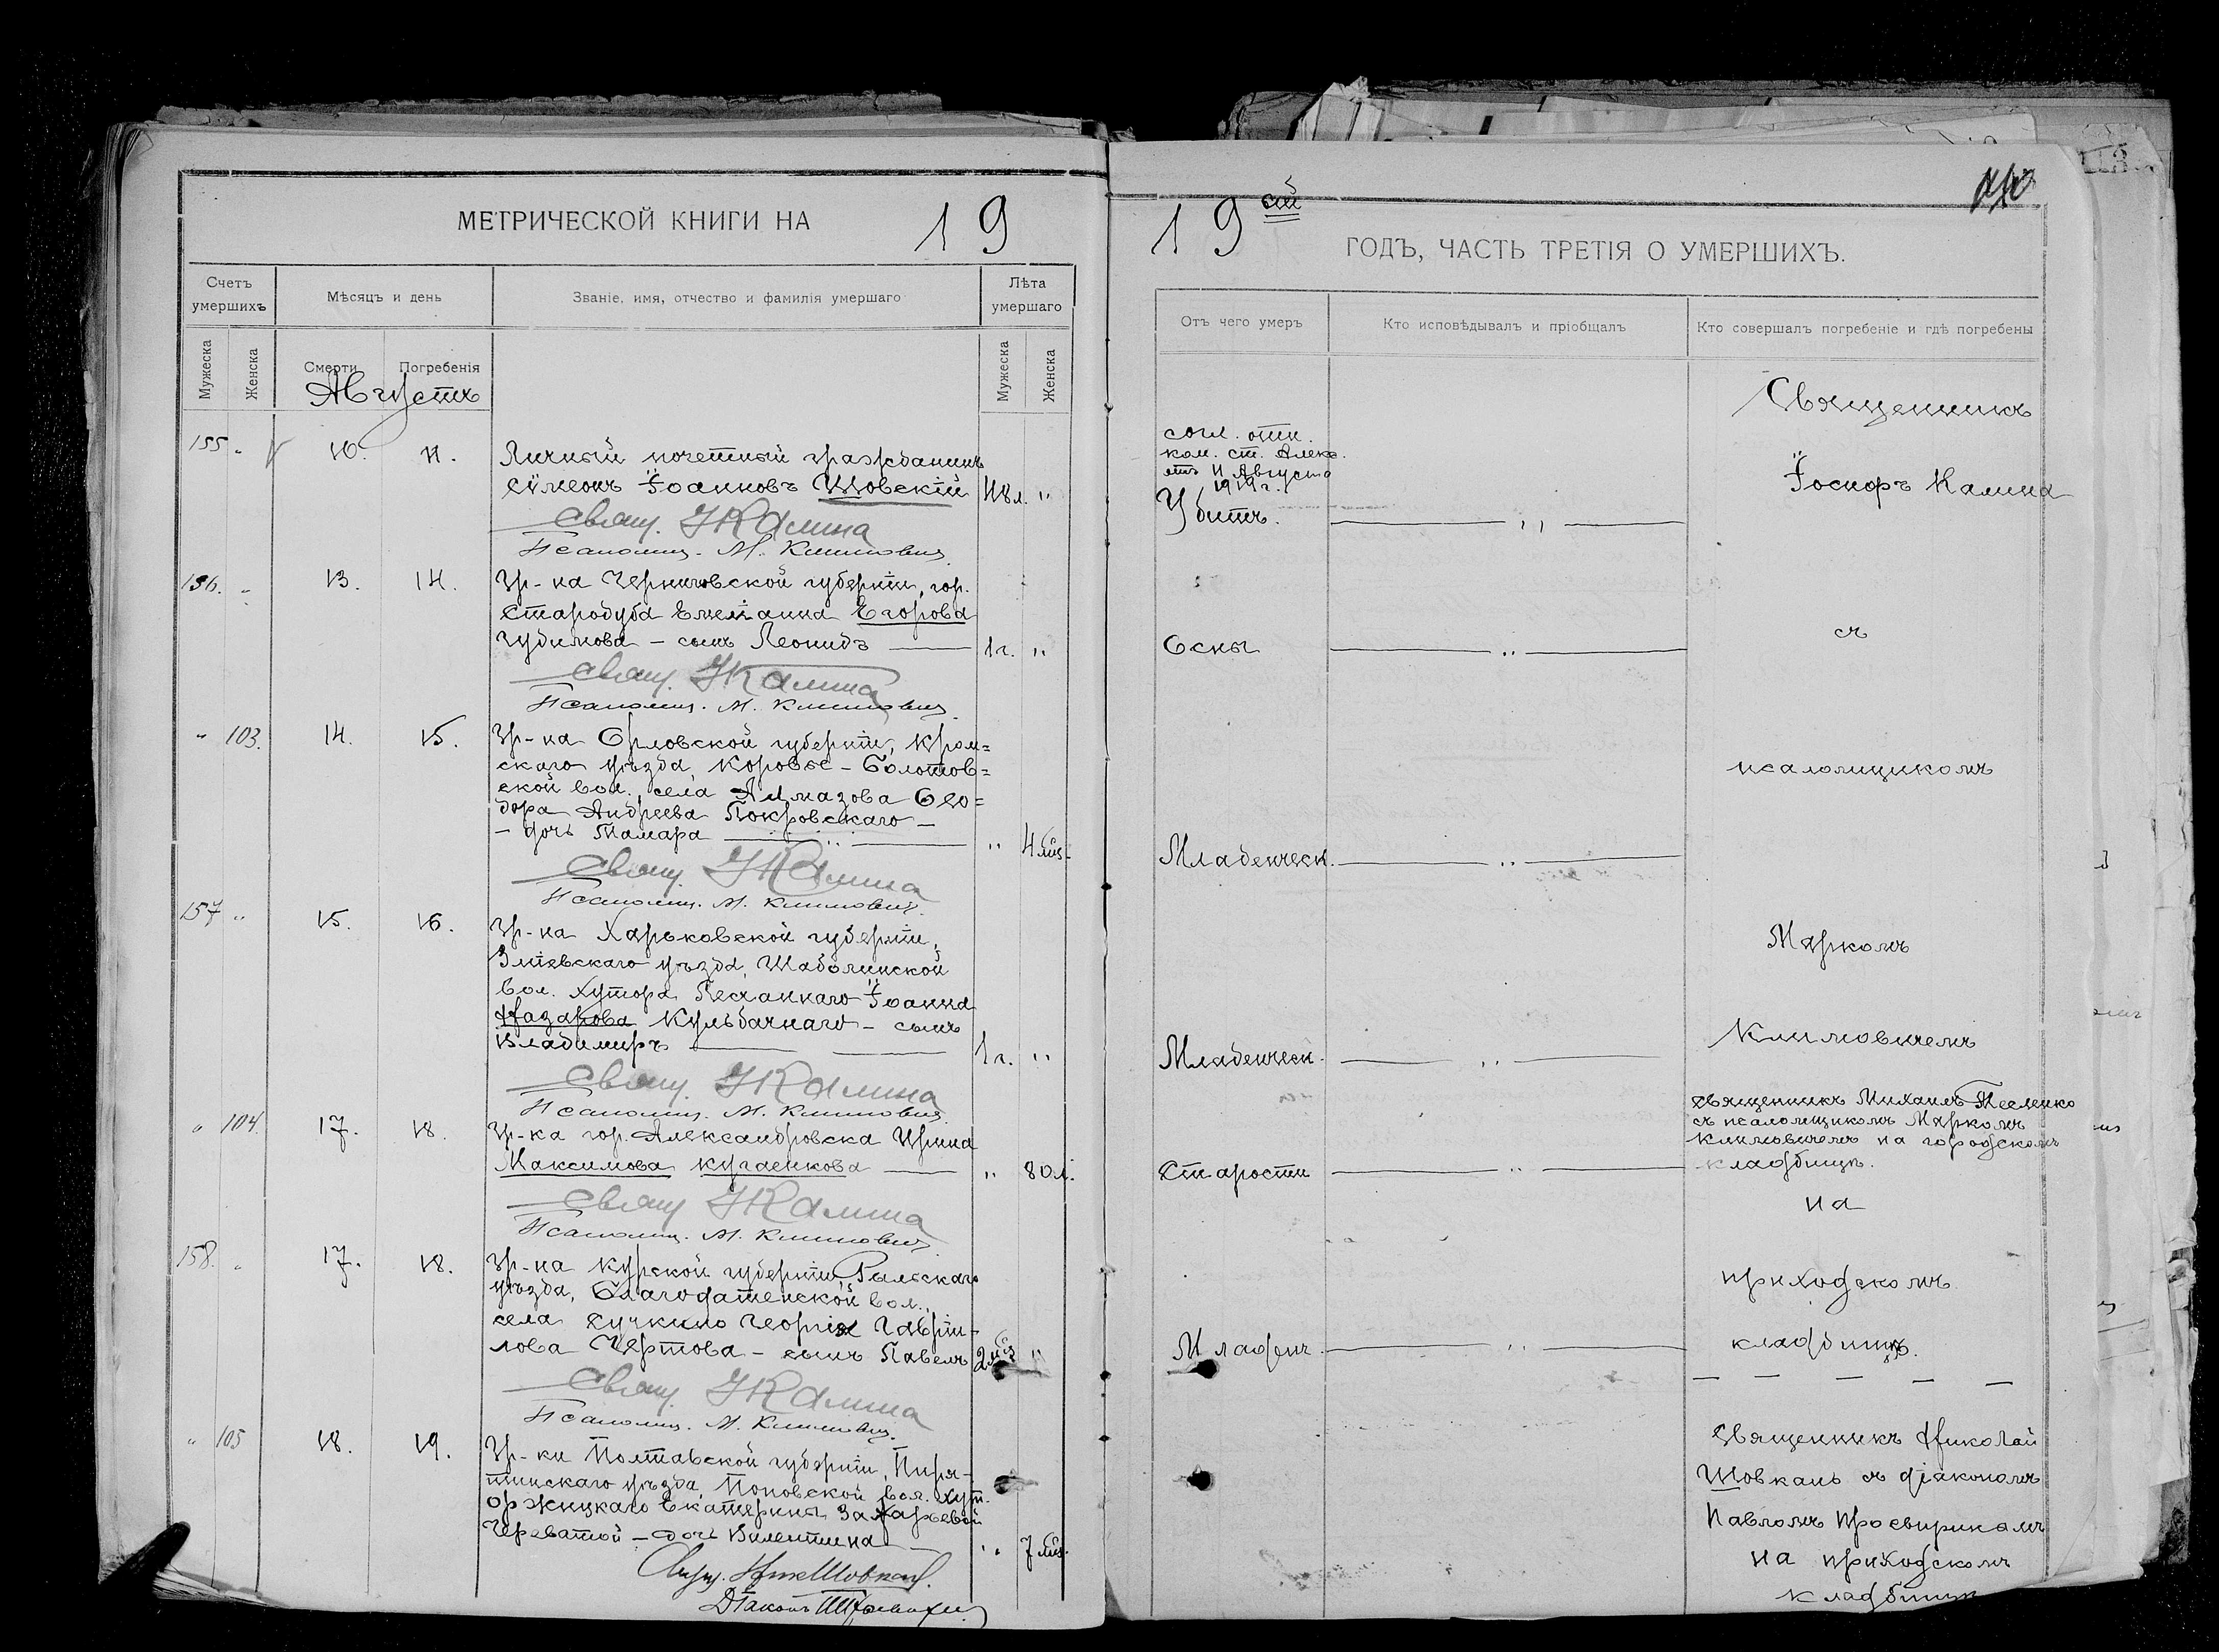 МЕТРИЧЕСКОЙ КНИГИ НА 19
Счетъ умершихъ
Мѣсяцъ и день
Званіе, имя, отчество и фамилія умершаго
Лѣта умершаго
Мужеска
Женска
Смерти
Погребенія
Мужеска
Женска
Августъ
155 " 10. 11.
Личный почетный гражданинъ
Сѵмеонъ Іоанновъ Шовскій 48 л. "
Свящ. І Калина
Псаломщ. М. Климовичъ
156. " 13. 14.
Гр-на Черниговской губерніи, гор.
Стародуба Емеліана Егорова
Гудимова – сынъ Леонидъ 1 г. "
Свящ. І Калина
Псаломщ. М. Климовичъ
" 103. 14. 15.
Гр-на Орловской губерніи, Кром=
скаго уѣзда, Коровье-Болотов=
ской вол., села Алмазова Ѳео=
дора Андреева Покровскаго –
– дочь Тамара " 4 мѣс.
Свящ. І Калина
Псаломщ. М. Климовичъ
157 " 15. 16.
Гр-на Харьковской губерніи,
Зміевскаго уѣзда, Шаболинской
вол. хутора Песчаннаго Іоанна
Назарова Кульбачнаго – сынъ
Владимиръ 1 г. "
Свящ. І Калина
Псаломщ. М. Климовичъ
" 104. 17. 18.
Гр-ка гор. Александровска Ирина
Максимова Кугаенкова " 80 л.
Свящ. І Калина
Псаломщ. М. Климовичъ
158. " 17. 18.
Гр-на Курской губерніи, Рыльскаго
уѣзда, Благодатенской вол.,
села Сучкино Георгія Гаврі-
лова Чертова – сынъ Павелъ 2 мѣс "
Свящ. І Калина
Псаломщ. М. Климовичъ
" 105 18. 19.
Гр-ки Полтавской губерніи, Пиря-
тинскаго уѣзда, Поповской вол. хут.
Оржицкаго Екатерины Захарьевой
Череватой – дочь Валентина " 7 мѣс.
Свящ. Ник Шовкань.
Діаконъ
19 ый
ГОДЪ, ЧАСТЬ ТРЕТІЯ О УМЕРШИХЪ.
Отъ чего умеръ
Кто исповѣдывалъ и пріобщалъ
Кто совершалъ погребеніе и гдѣ погребены
согл. отн.
ком. ст. Алекс.
отъ 11 Августа
1919 г.
Убитъ.
Оспы
Младенческ.
Младенческ.
Старости
Младенч.
Священникъ
Іосифъ Калина
съ
псаломщикомъ
Маркомъ
Климовичемъ
Священникъ Михаилъ Тесленко
съ псаломщикомъ Маркомъ
Климовичемъ на городскомъ
кладбищѣ.
на
приходскомъ
кладбищѣ.
Священникъ Николай
Шовкань съ діакономъ
Павломъ Просвиринымъ
на приходскомъ
кладбищѣ